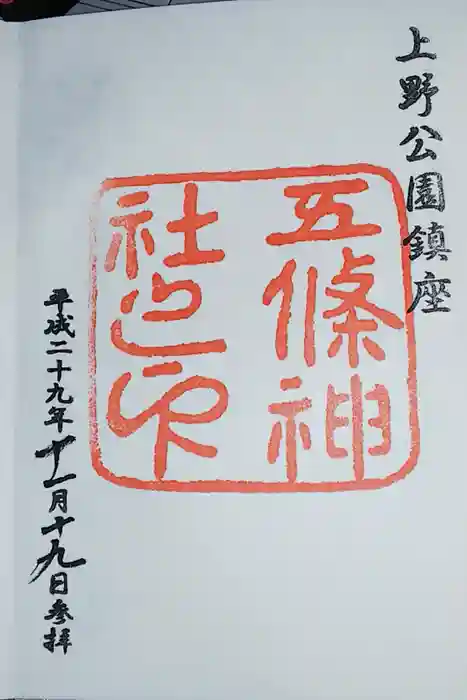 上野公園鎮座
五條神
社之印
平成二十九年十一月十九日参拝